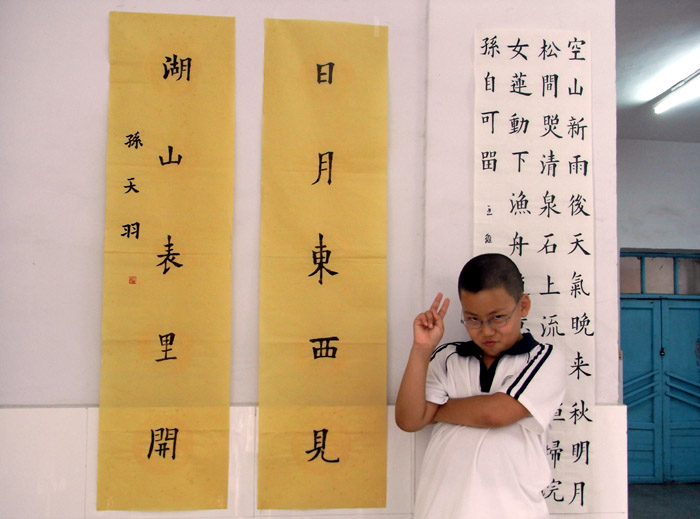 空山新雨後天氣晚来秋明月
松間照清泉石上流
女蓮動下漁舟
孫自可留 王維
日月東西見
湖山表里開
孫天羽